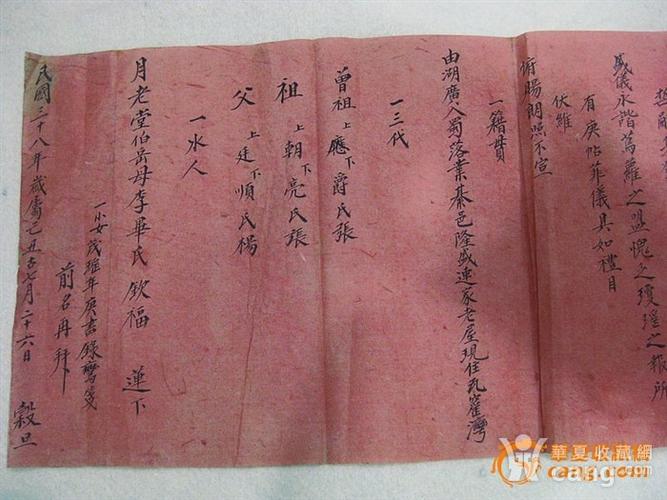 盛儀永諧蔦蘿之盟愧乏瓊瑤之報所
有庚帖菲儀具如禮目
伏維
俯賜朗照不宣
一籍貫
由湖廣入蜀落業綦邑隆盛連家老屋現住瓦窰灣
一三代
曾祖上應下爵氏張
祖上朝下亮氏張
父上廷下順氏楊
一水人
月老堂伯岳母李畢氏欽福 蓮下
一小女茂璀年庚書錄鸞箋
前名再拜
民國三十八年歲屬己丑古七月二十六日 穀旦
華夏收藏網
cang.com